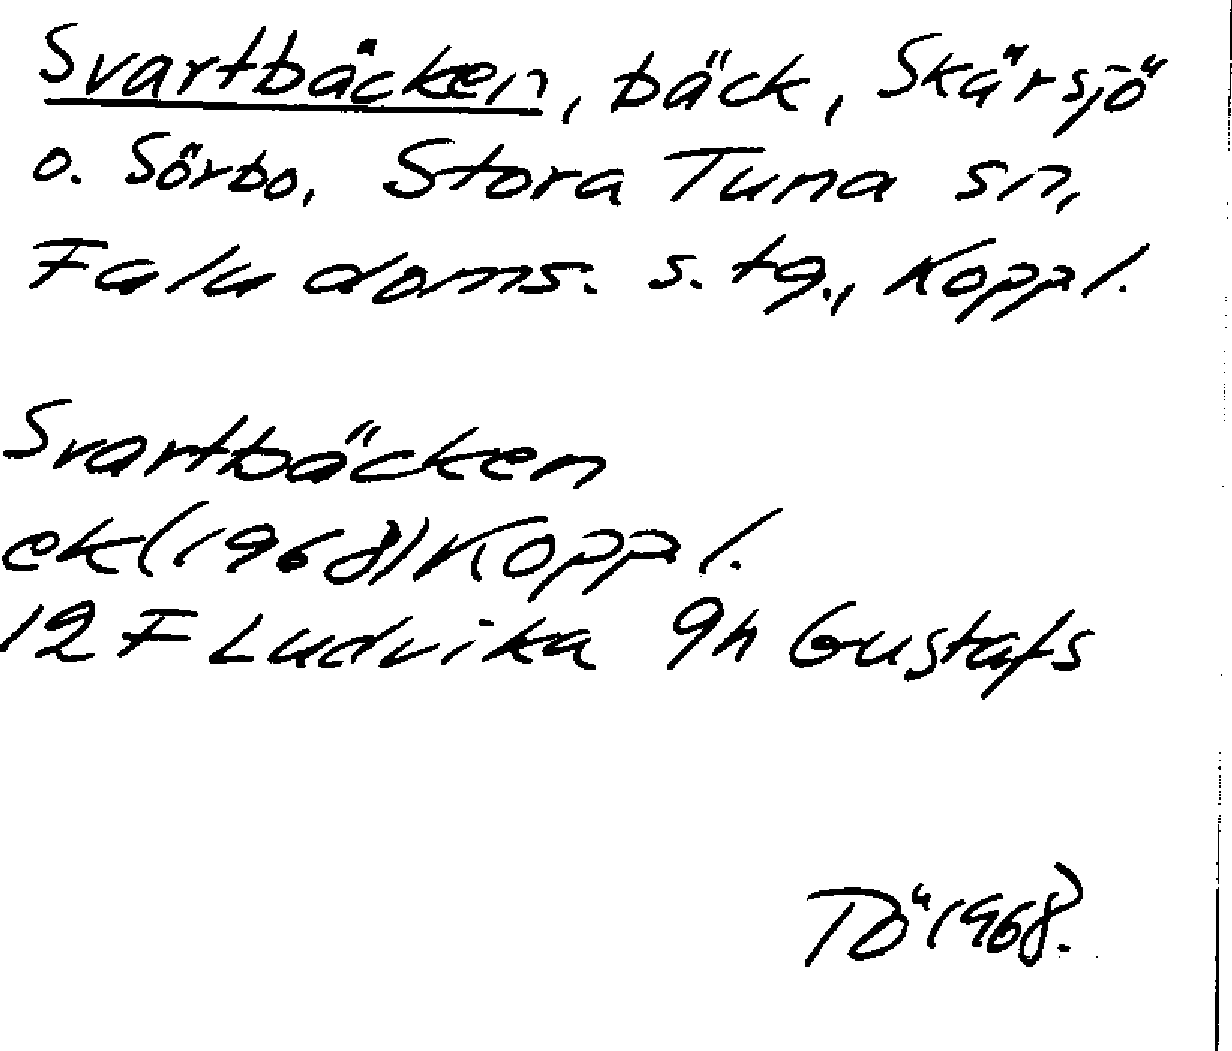 Svartbäcken, bäck, Skärsjö
o. Sörbo, Stora Tuna sn,
Falu doms. s. tg., Koppl.
Svartbäcken
ek (1968) Koppl.
12 F Ludvika 9h Gustafs
TÖ 1968.